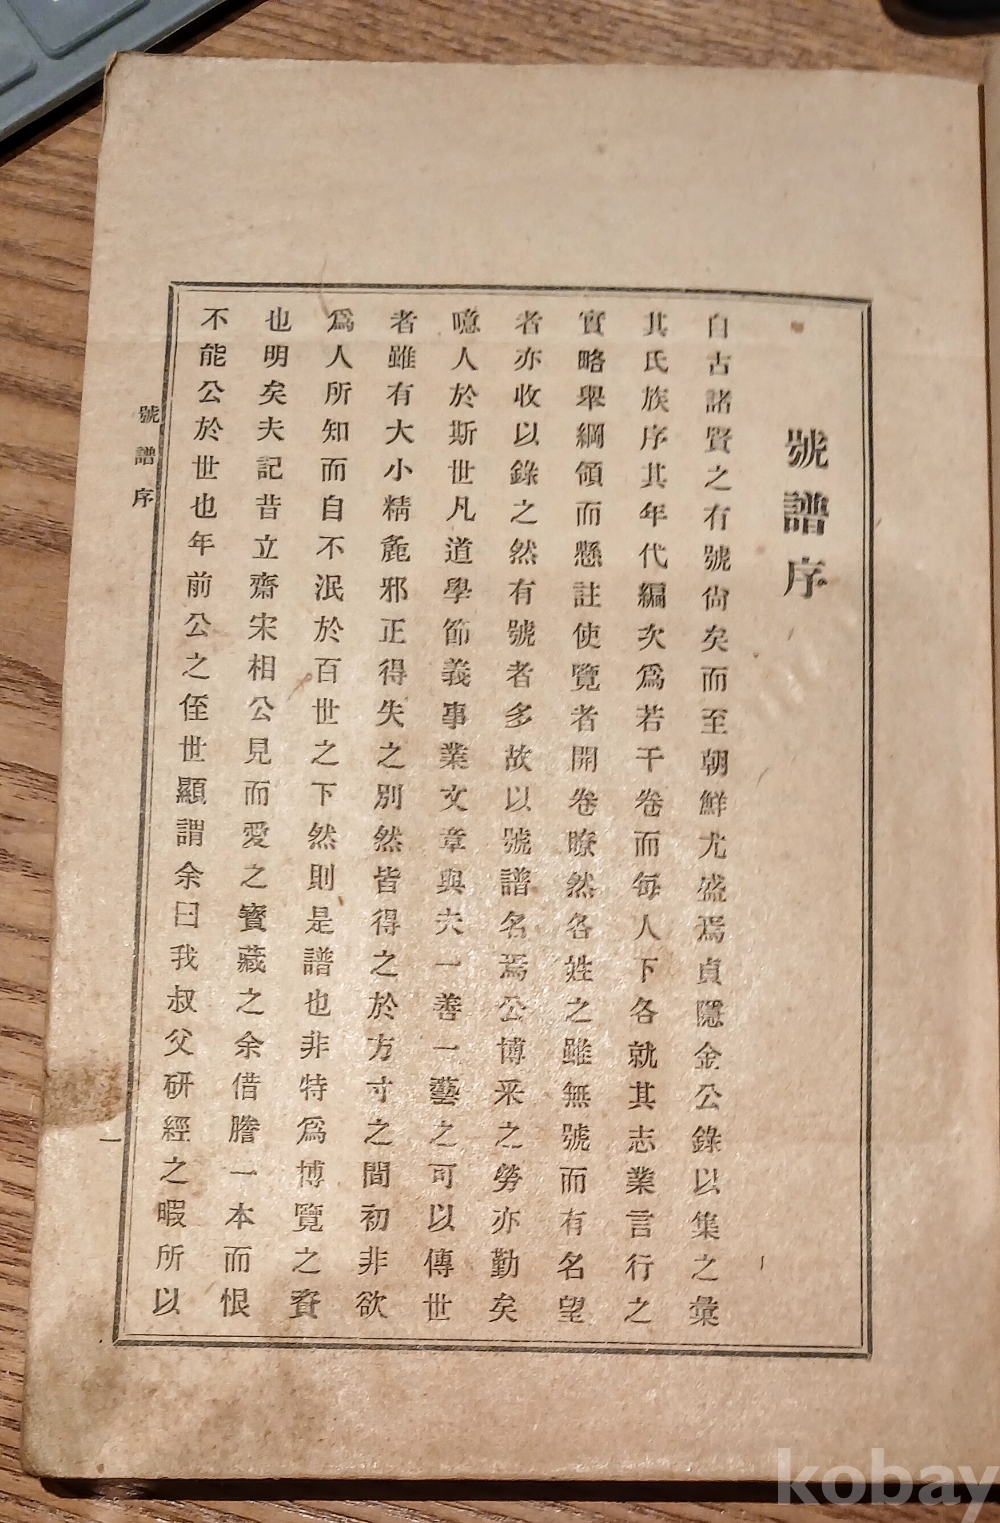 號譜序
自古諸賢之有號尙矣而至朝鮮尤盛焉貞隱金公錄以集之彙
其氏族序其年代編次爲若干卷而每人下各就其志業言行之
實略舉綱領而懸註使覽者開卷瞭然各姓之雖無號而有名望
者亦收以錄之然有號者多故以號譜名焉公博采之勞亦勤矣
噫人於斯世凡道學節義事業文章與夫一善一藝之可以傳世
者雖有大小精麁邪正得失之別然皆得之於方寸之間初非欲
爲人所知而自不泯於百世之下然則是譜也非特爲博覽之資
也明矣夫記昔立齋宋相公見而愛之寶藏之余借謄一本而恨
不能公於世也年前公之侄世顯謂余曰我叔父研經之暇所以
號譜序
一
kobay